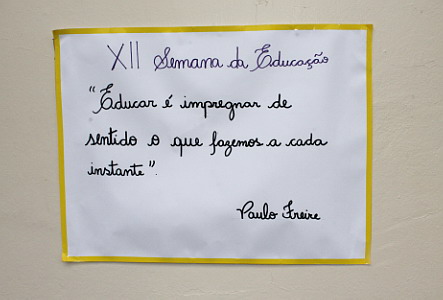 XII Semana da Educação
"Educar é impregnar de
sentido o que fazemos a cada
instante".
Paulo Freire